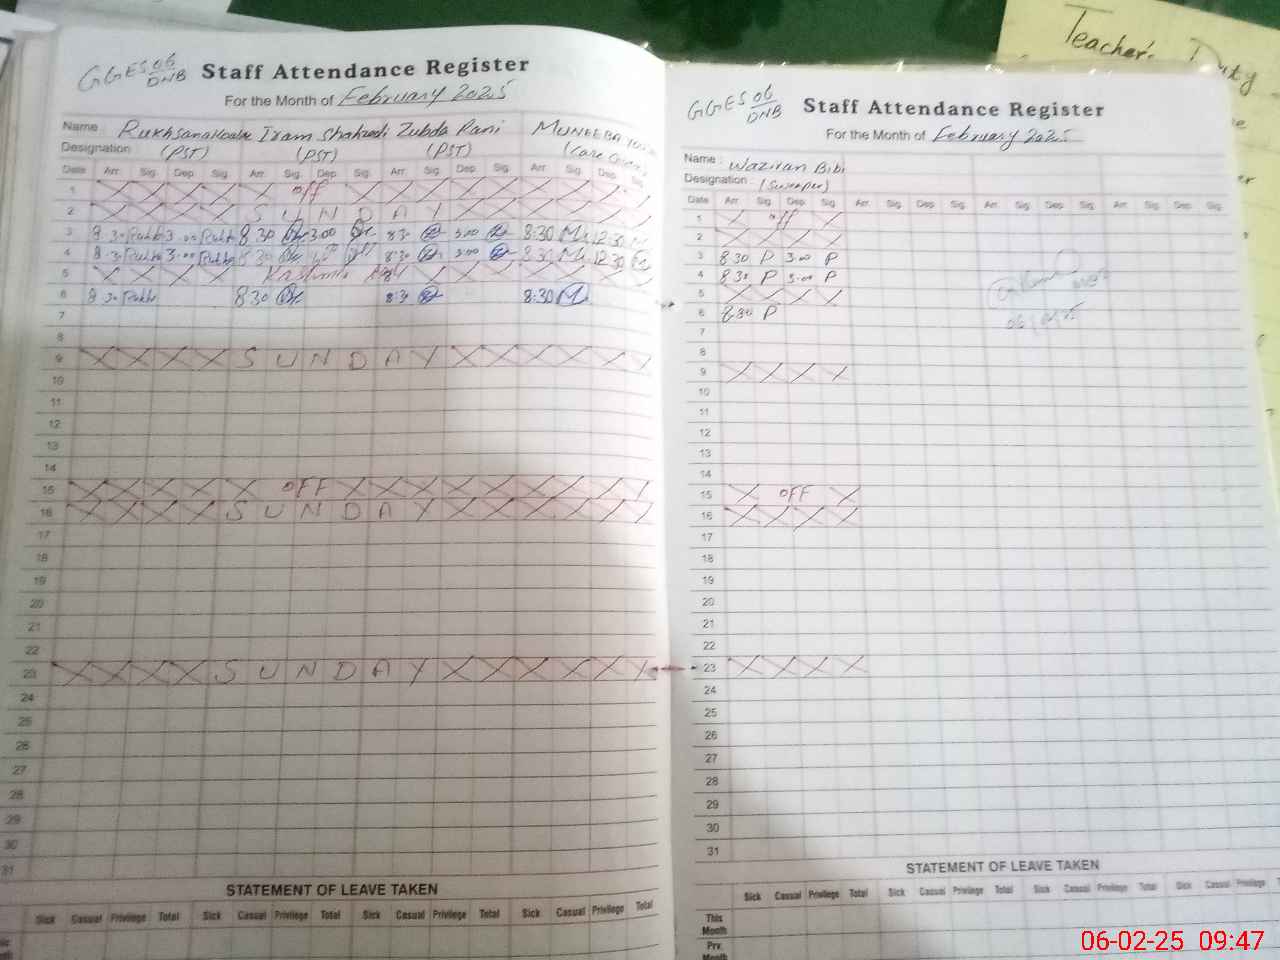 GGES 06
DNB
Staff Attendance Register
For the Month of February 2025
Name : Rukhsana Iram Shahzadi Zubda Rani MUNEEBA
Designation (PST) (PST) (PST) (Care
Date Arr. Sig. Dep. Sig. Arr. Sig. Dep. Sig. Arr. Sig. Dep. Sig. Arr. Sig. Dep. Sig.
1 off
2 SUNDAY
3 8:30 Rukh 3:00 Rukh 8 30 3:00 8:30 3:00 8:30 M 12:30
4 8:30 Rukh 3:00 Rukh 8 30 8:30 3:00 8:30 M 12:30
5 Kashmir
6 8:30 Rukh 8 30 8:30 8:30 M
7
8
9 SUNDAY
10
11
12
13
14
15 OFF
16 SUNDAY
17
18
19
20
21
22
23 SUNDAY
24
25
26
27
28
29
30
31
STATEMENT OF LEAVE TAKEN
Sick Casual Privilege Total Sick Casual Privilege Total Sick Casual Privilege Total Sick Casual Privilege Total
GGES 06
DNB
Staff Attendance Register
For the Month of February 2025
Name : Waziran Bibi
Designation : (Sweeper)
Date Arr. Sig. Dep. Sig. Arr. Sig. Dep. Sig. Arr. Sig. Dep. Sig. Arr. Sig. Dep. Sig.
1 off
2
3 8 30 P 3:00 P
4 8 30 P 3:00 P
5
6 8:30 P
7
8
9
10
11
12
13
14
15 OFF
16
17
18
19
20
21
22
23
24
25
26
27
28
29
30
31
STATEMENT OF LEAVE TAKEN
Sick Casual Privilege Total Sick Casual Privilege Total Sick Casual Privilege Total Sick Casual Privilege
This Month
Prv. Month
Teacher's Duty
06-02-25 09:47